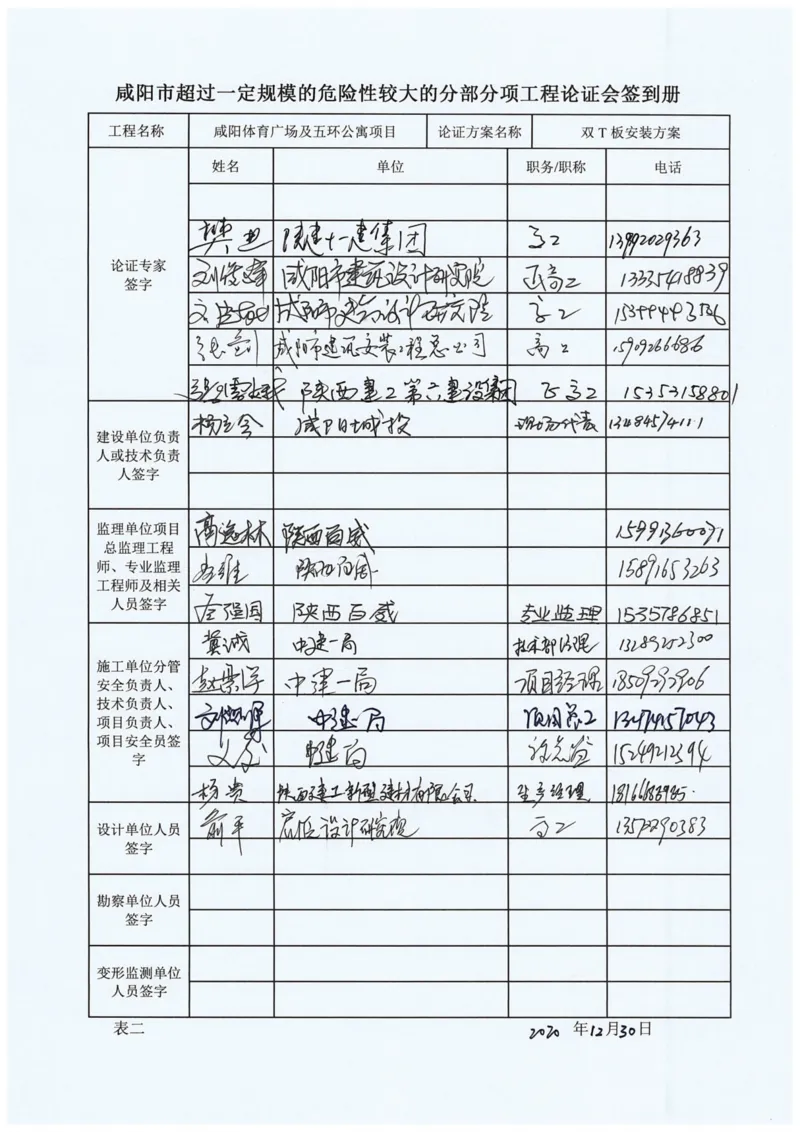 咸阳市超过一定规模的危险性较大的分部分项工程论证会签到册
工程名称 咸阳体育广场及五环公寓项目 论证方案名称 双T板安装方案
姓名 单位 职务/职称 电话
论证专家
签字
樊 陕建十一建集团 高工 13992029363
刘俊 咸阳市建筑设计研究院 正高工 13335418839
咸阳市建筑设计研究院 高工 15399493536
张 咸阳市建筑安装工程总公司 高工 15909266686
陕西建工第六建设集团 正高工 15353158801
建设单位负责
人或技术负责
人签字
杨 咸阳城投 现场代表 13484574111
监理单位项目
总监理工程
师、专业监理
工程师及相关
人员签字
高逸林 陕西百威 15991360071
陕西百威 15891653263
强国 陕西百威 专业监理 1535786851
施工单位分管
安全负责人、
技术负责人、
项目负责人、
项目安全员签
字
冀诚 中建一局 技术部经理 13289252300
赵景学 中建一局 项目经理 18509292906
刘 中建一局 项目总工 13474157043
中建一局 15249212394
杨贵 陕西建工新型建材有限公司 生产经理
设计单位人员
签字
俞平 设计研究院 高工 13572290383
勘察单位人员
签字
变形监测单位
人员签字
表二 2020 年12月30日